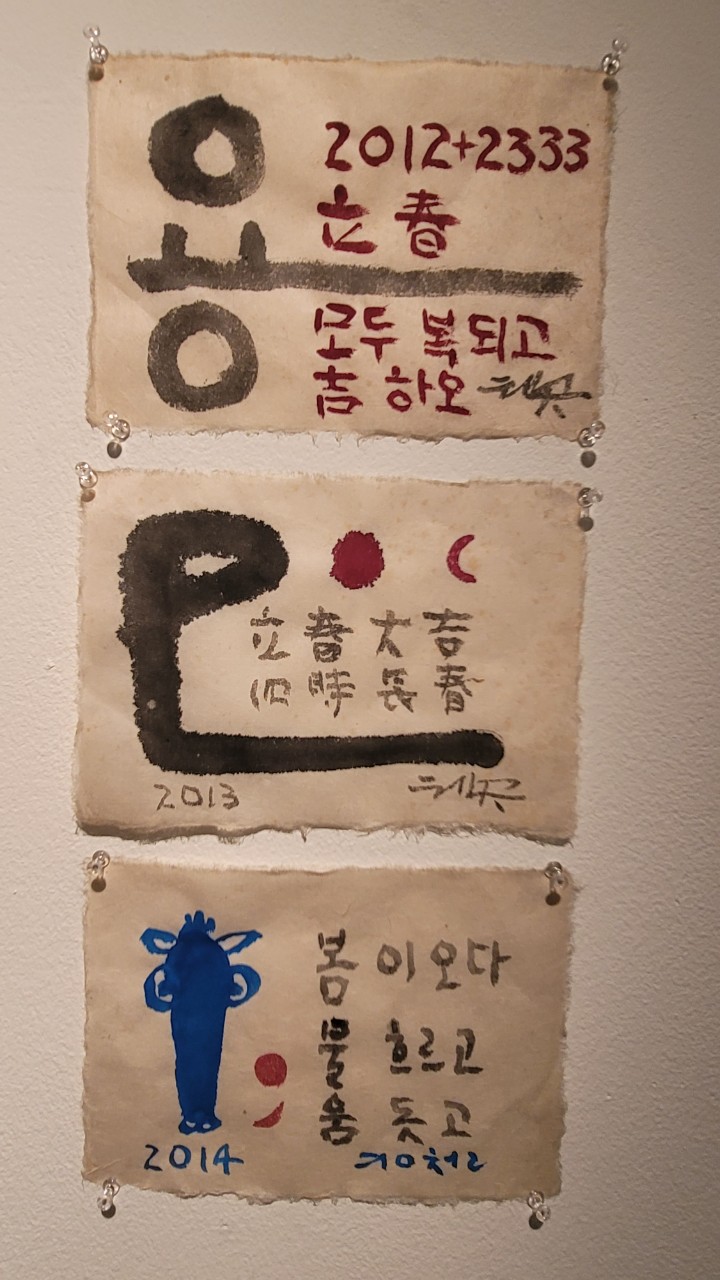 용
2012+2333
立春
모두 복되고
吉 하오
立春大吉
四時長春
2013
봄이 오다
물 흐르고
움 돋고
2014